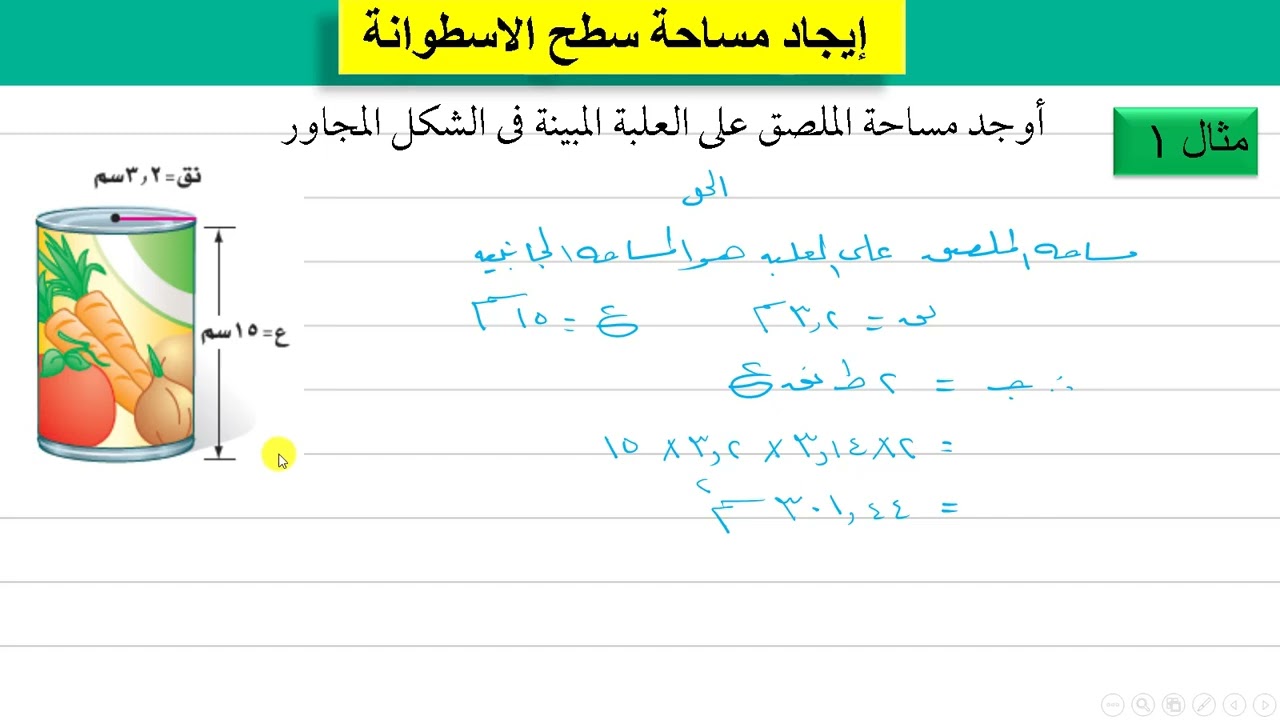 إيجاد مساحة سطح الاسطوانة
مثال ١
أوجد مساحة الملصق على العلبة المبينة فى الشكل المجاور
نق=٣,٢سم
ع=١٥سم
الحل
مساحة الملصق على العلبة هو المساحة الجانبية
نق = ٣,٢ سم    ع = ١٥ سم
∴ جـ = ٢ ط نق ع
= ٢ × ٣,١٤ × ٣,٢ × ١٥
= ٣٠١,٤٤ سم٢